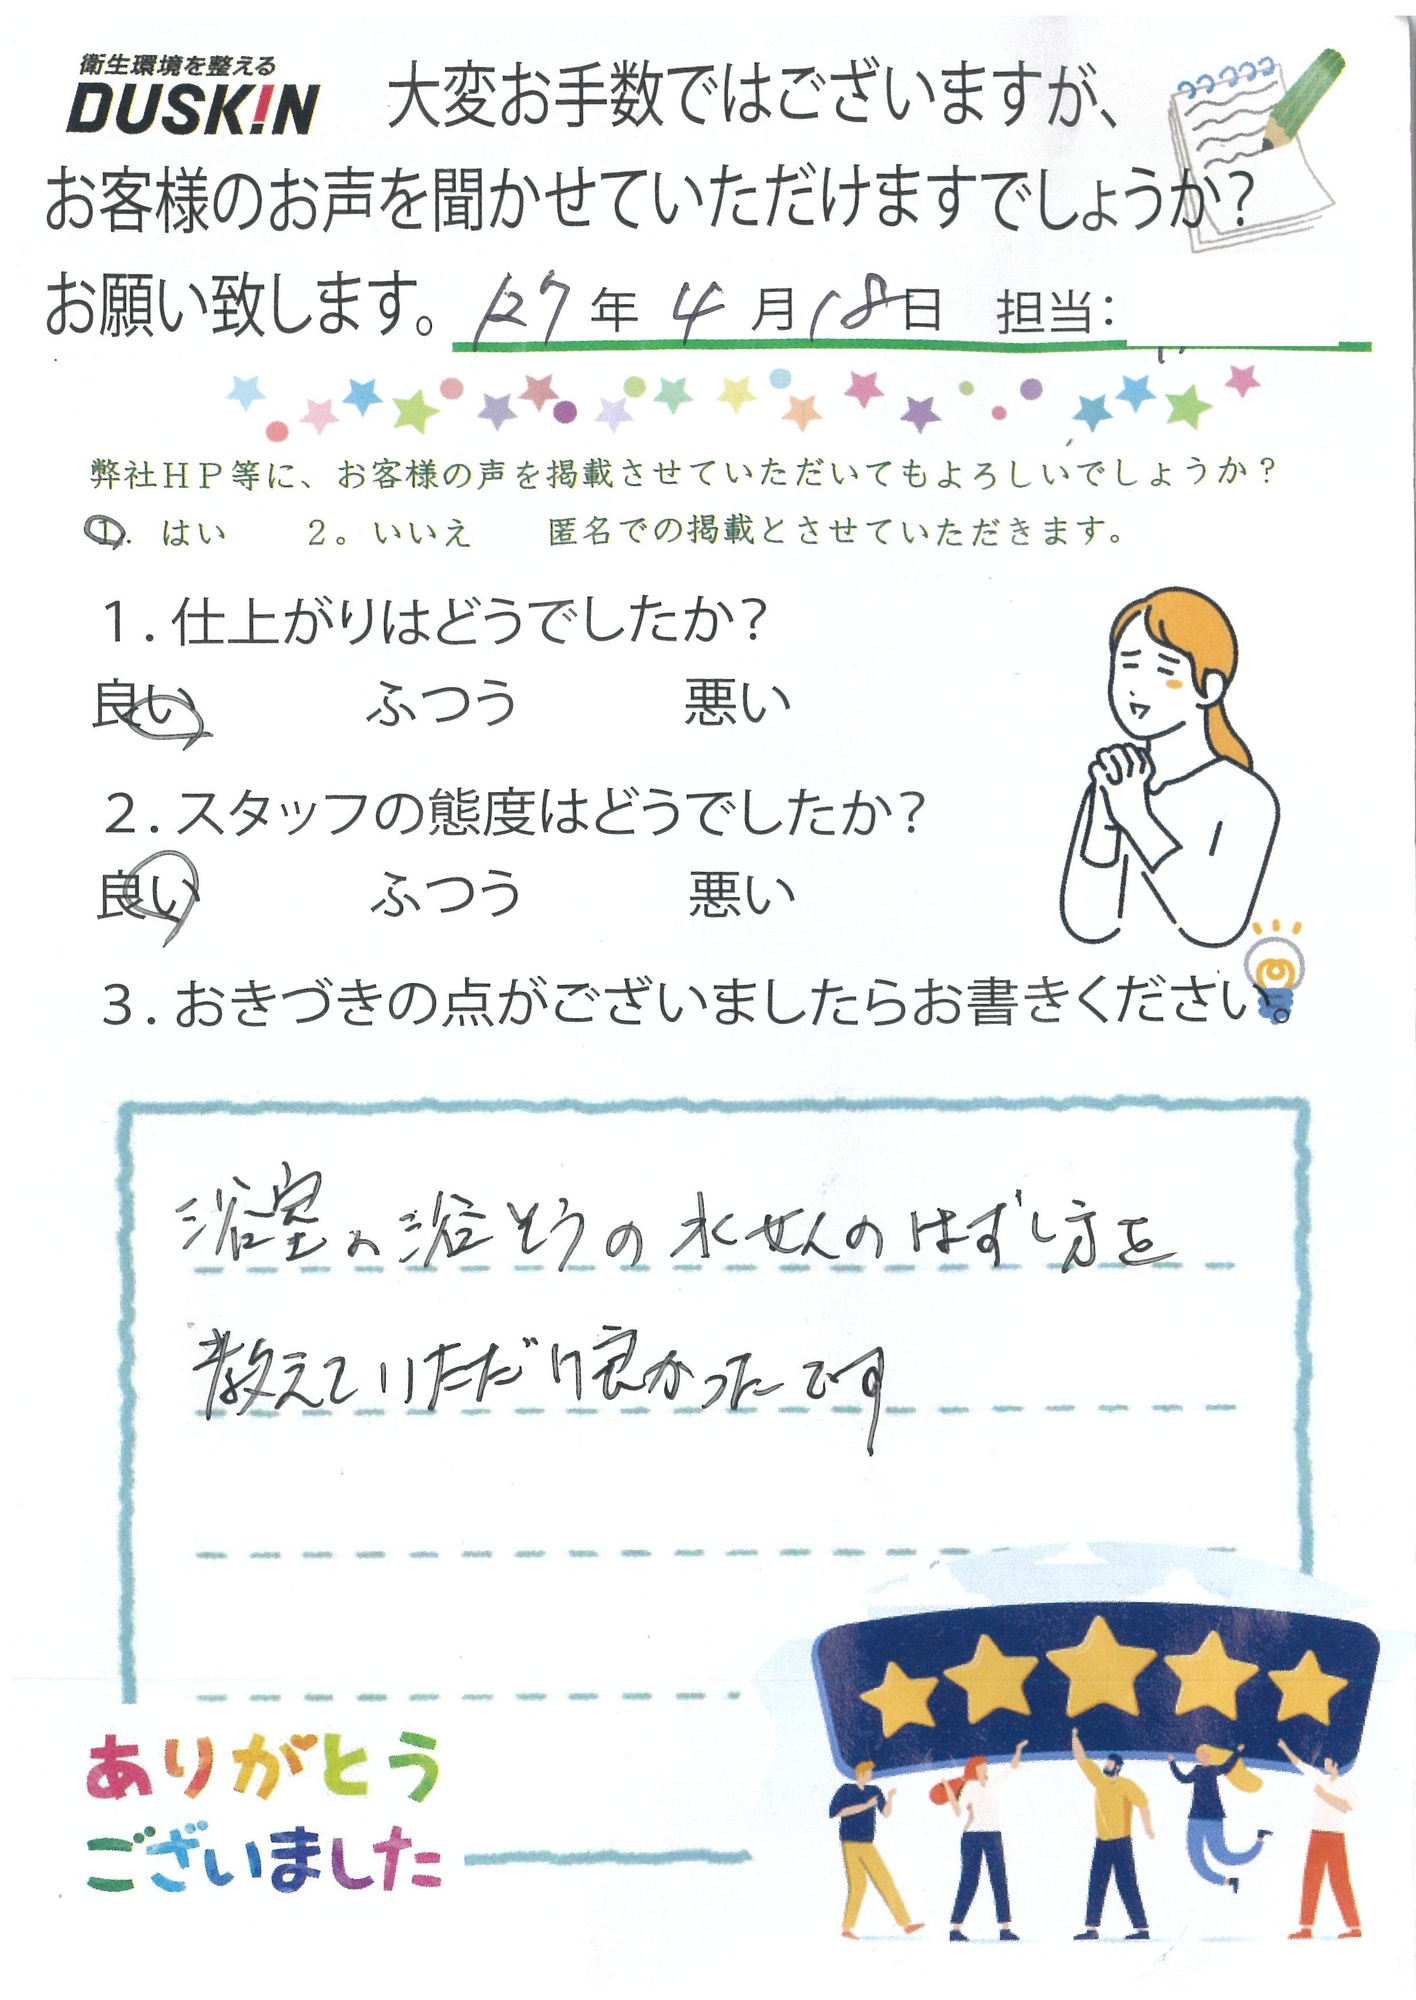 衛生環境を整える
DUSKIN 大変お手数ではございますが、
お客様のお声を聞かせていただけますでしょうか?
お願い致します。 R7年 4月18日 担当:
弊社HP等に、お客様の声を掲載させていただいてもよろしいでしょうか?
1. はい 2。いいえ 匿名での掲載とさせていただきます。
1.仕上がりはどうでしたか?
良い ふつう 悪い
2.スタッフの態度はどうでしたか?
良い ふつう 悪い
3.おきづきの点がございましたらお書きください。
浴室の浴そうの水せんのはずし方を
教えていただけ良かったです
ありがとう
ございました